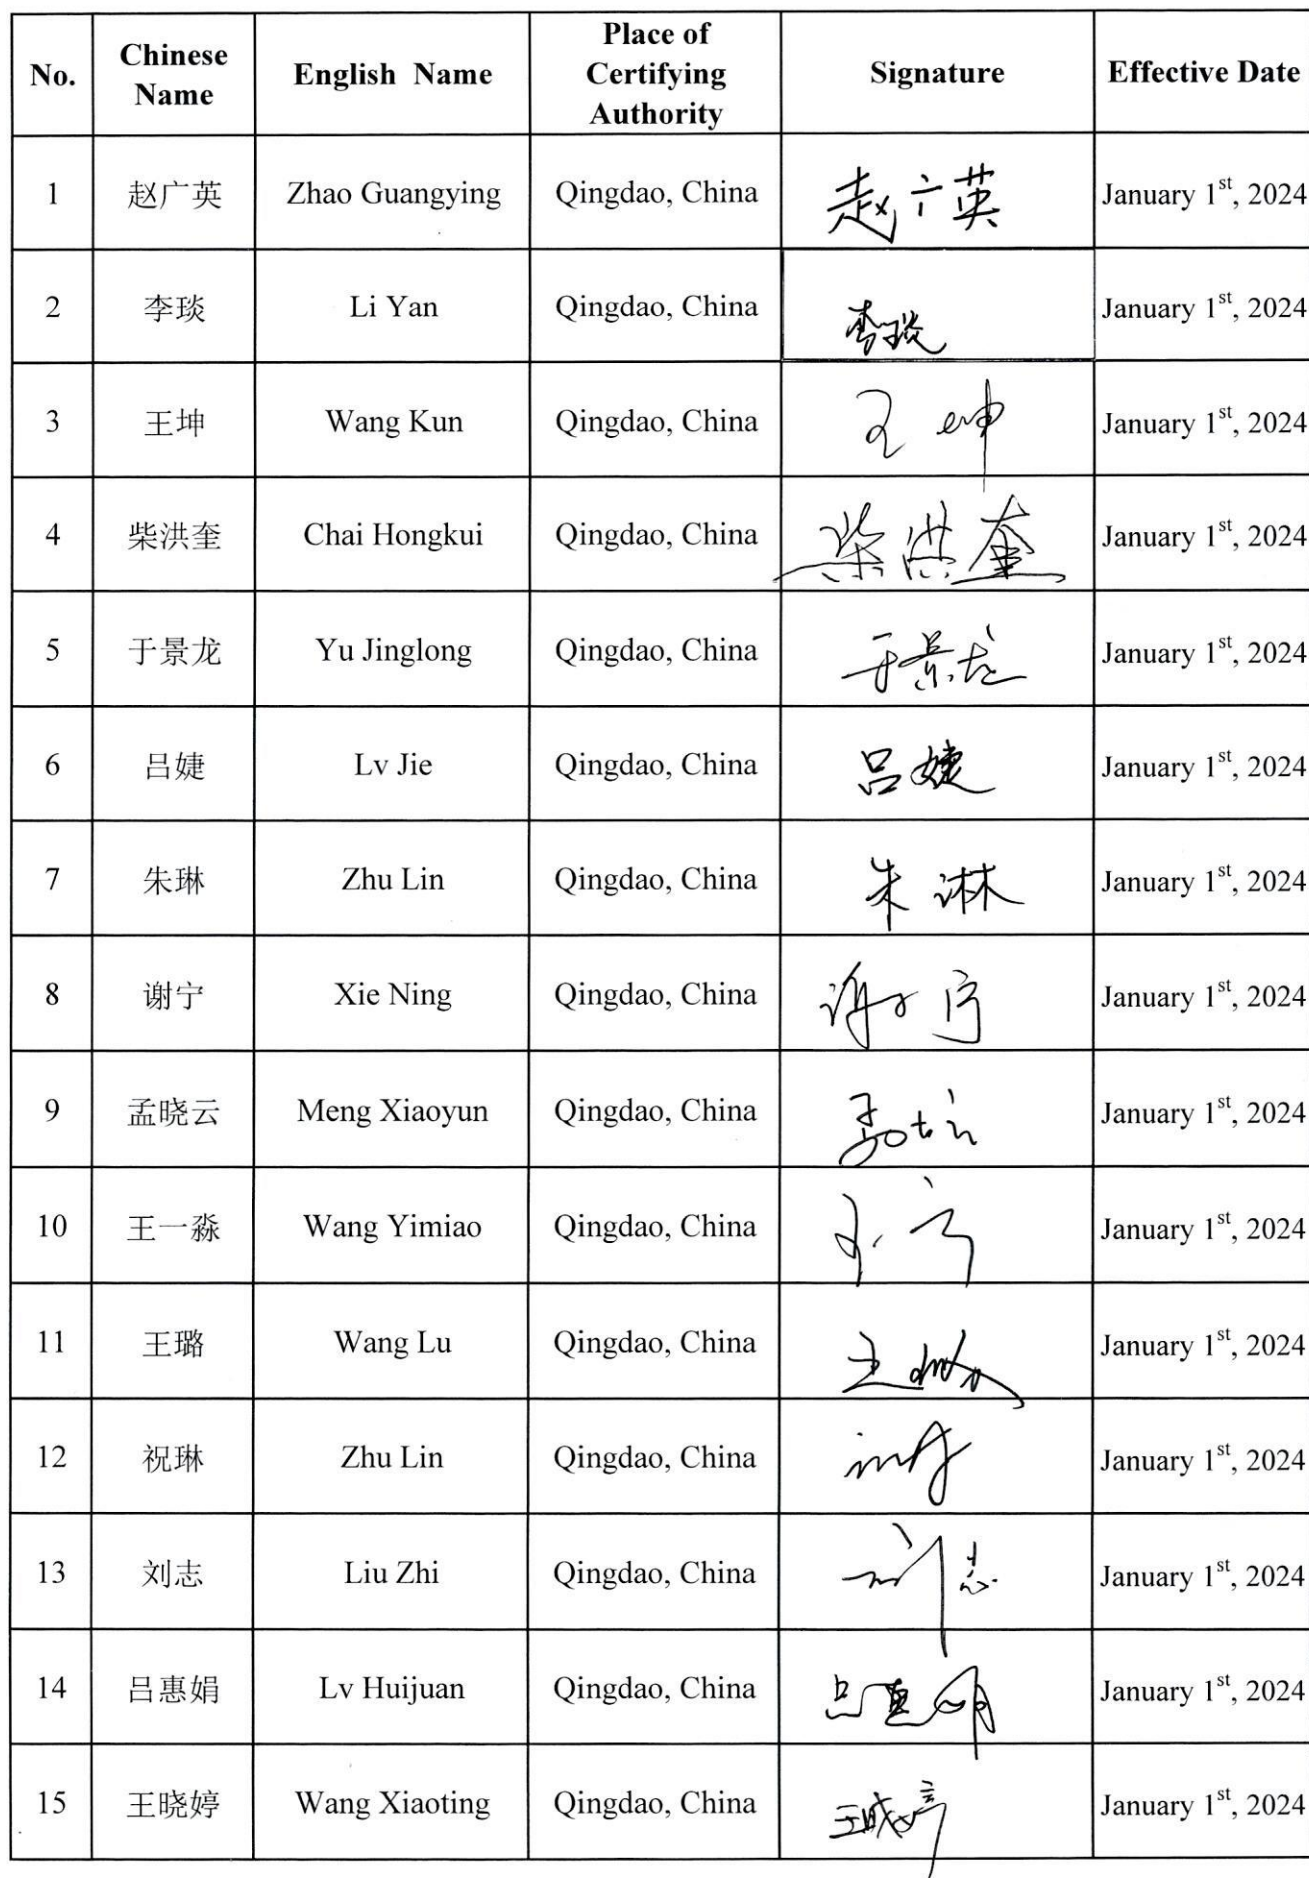 No. Chinese Name English Name Place of Certifying Authority Signature Effective Date
1 赵广英 Zhao Guangying Qingdao, China 赵广英 January 1st, 2024
2 李琰 Li Yan Qingdao, China 李琰 January 1st, 2024
3 王坤 Wang Kun Qingdao, China 王坤 January 1st, 2024
4 柴洪奎 Chai Hongkui Qingdao, China 柴洪奎 January 1st, 2024
5 于景龙 Yu Jinglong Qingdao, China 于景龙 January 1st, 2024
6 吕婕 Lv Jie Qingdao, China 吕婕 January 1st, 2024
7 朱琳 Zhu Lin Qingdao, China 朱琳 January 1st, 2024
8 谢宁 Xie Ning Qingdao, China 谢宁 January 1st, 2024
9 孟晓云 Meng Xiaoyun Qingdao, China January 1st, 2024
10 王一淼 Wang Yimiao Qingdao, China January 1st, 2024
11 王璐 Wang Lu Qingdao, China January 1st, 2024
12 祝琳 Zhu Lin Qingdao, China January 1st, 2024
13 刘志 Liu Zhi Qingdao, China 刘志 January 1st, 2024
14 吕惠娟 Lv Huijuan Qingdao, China 吕惠娟 January 1st, 2024
15 王晓婷 Wang Xiaoting Qingdao, China 王晓婷 January 1st, 2024